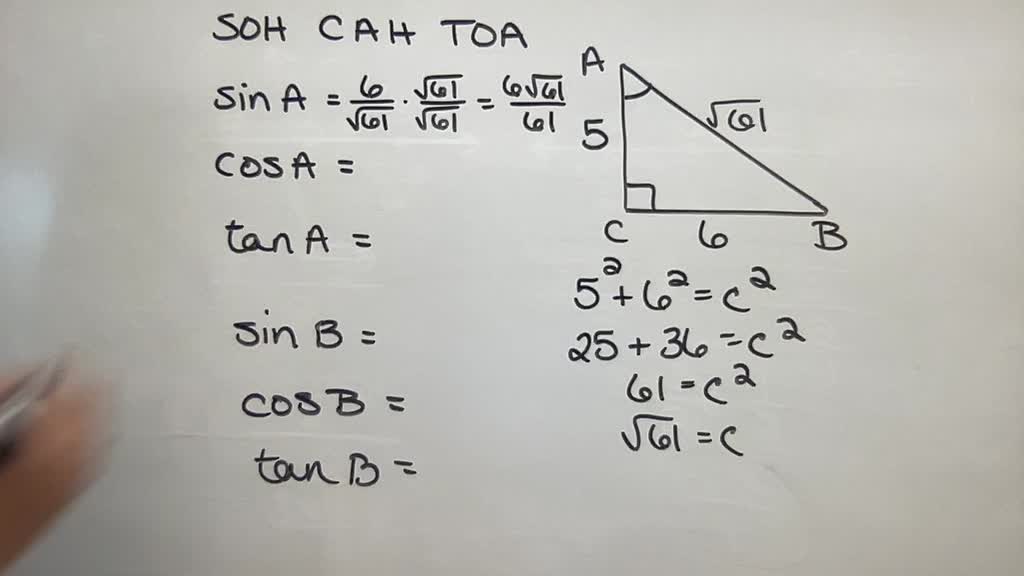 SOH CAH TOA
sin A = 6/√61 · √61/√61 = 6√61/61
cos A =
tan A =
sin B =
cos B =
tan B =
A
√61
5
C 6 B
5² + 6² = c²
25 + 36 = c²
61 = c²
√61 = c